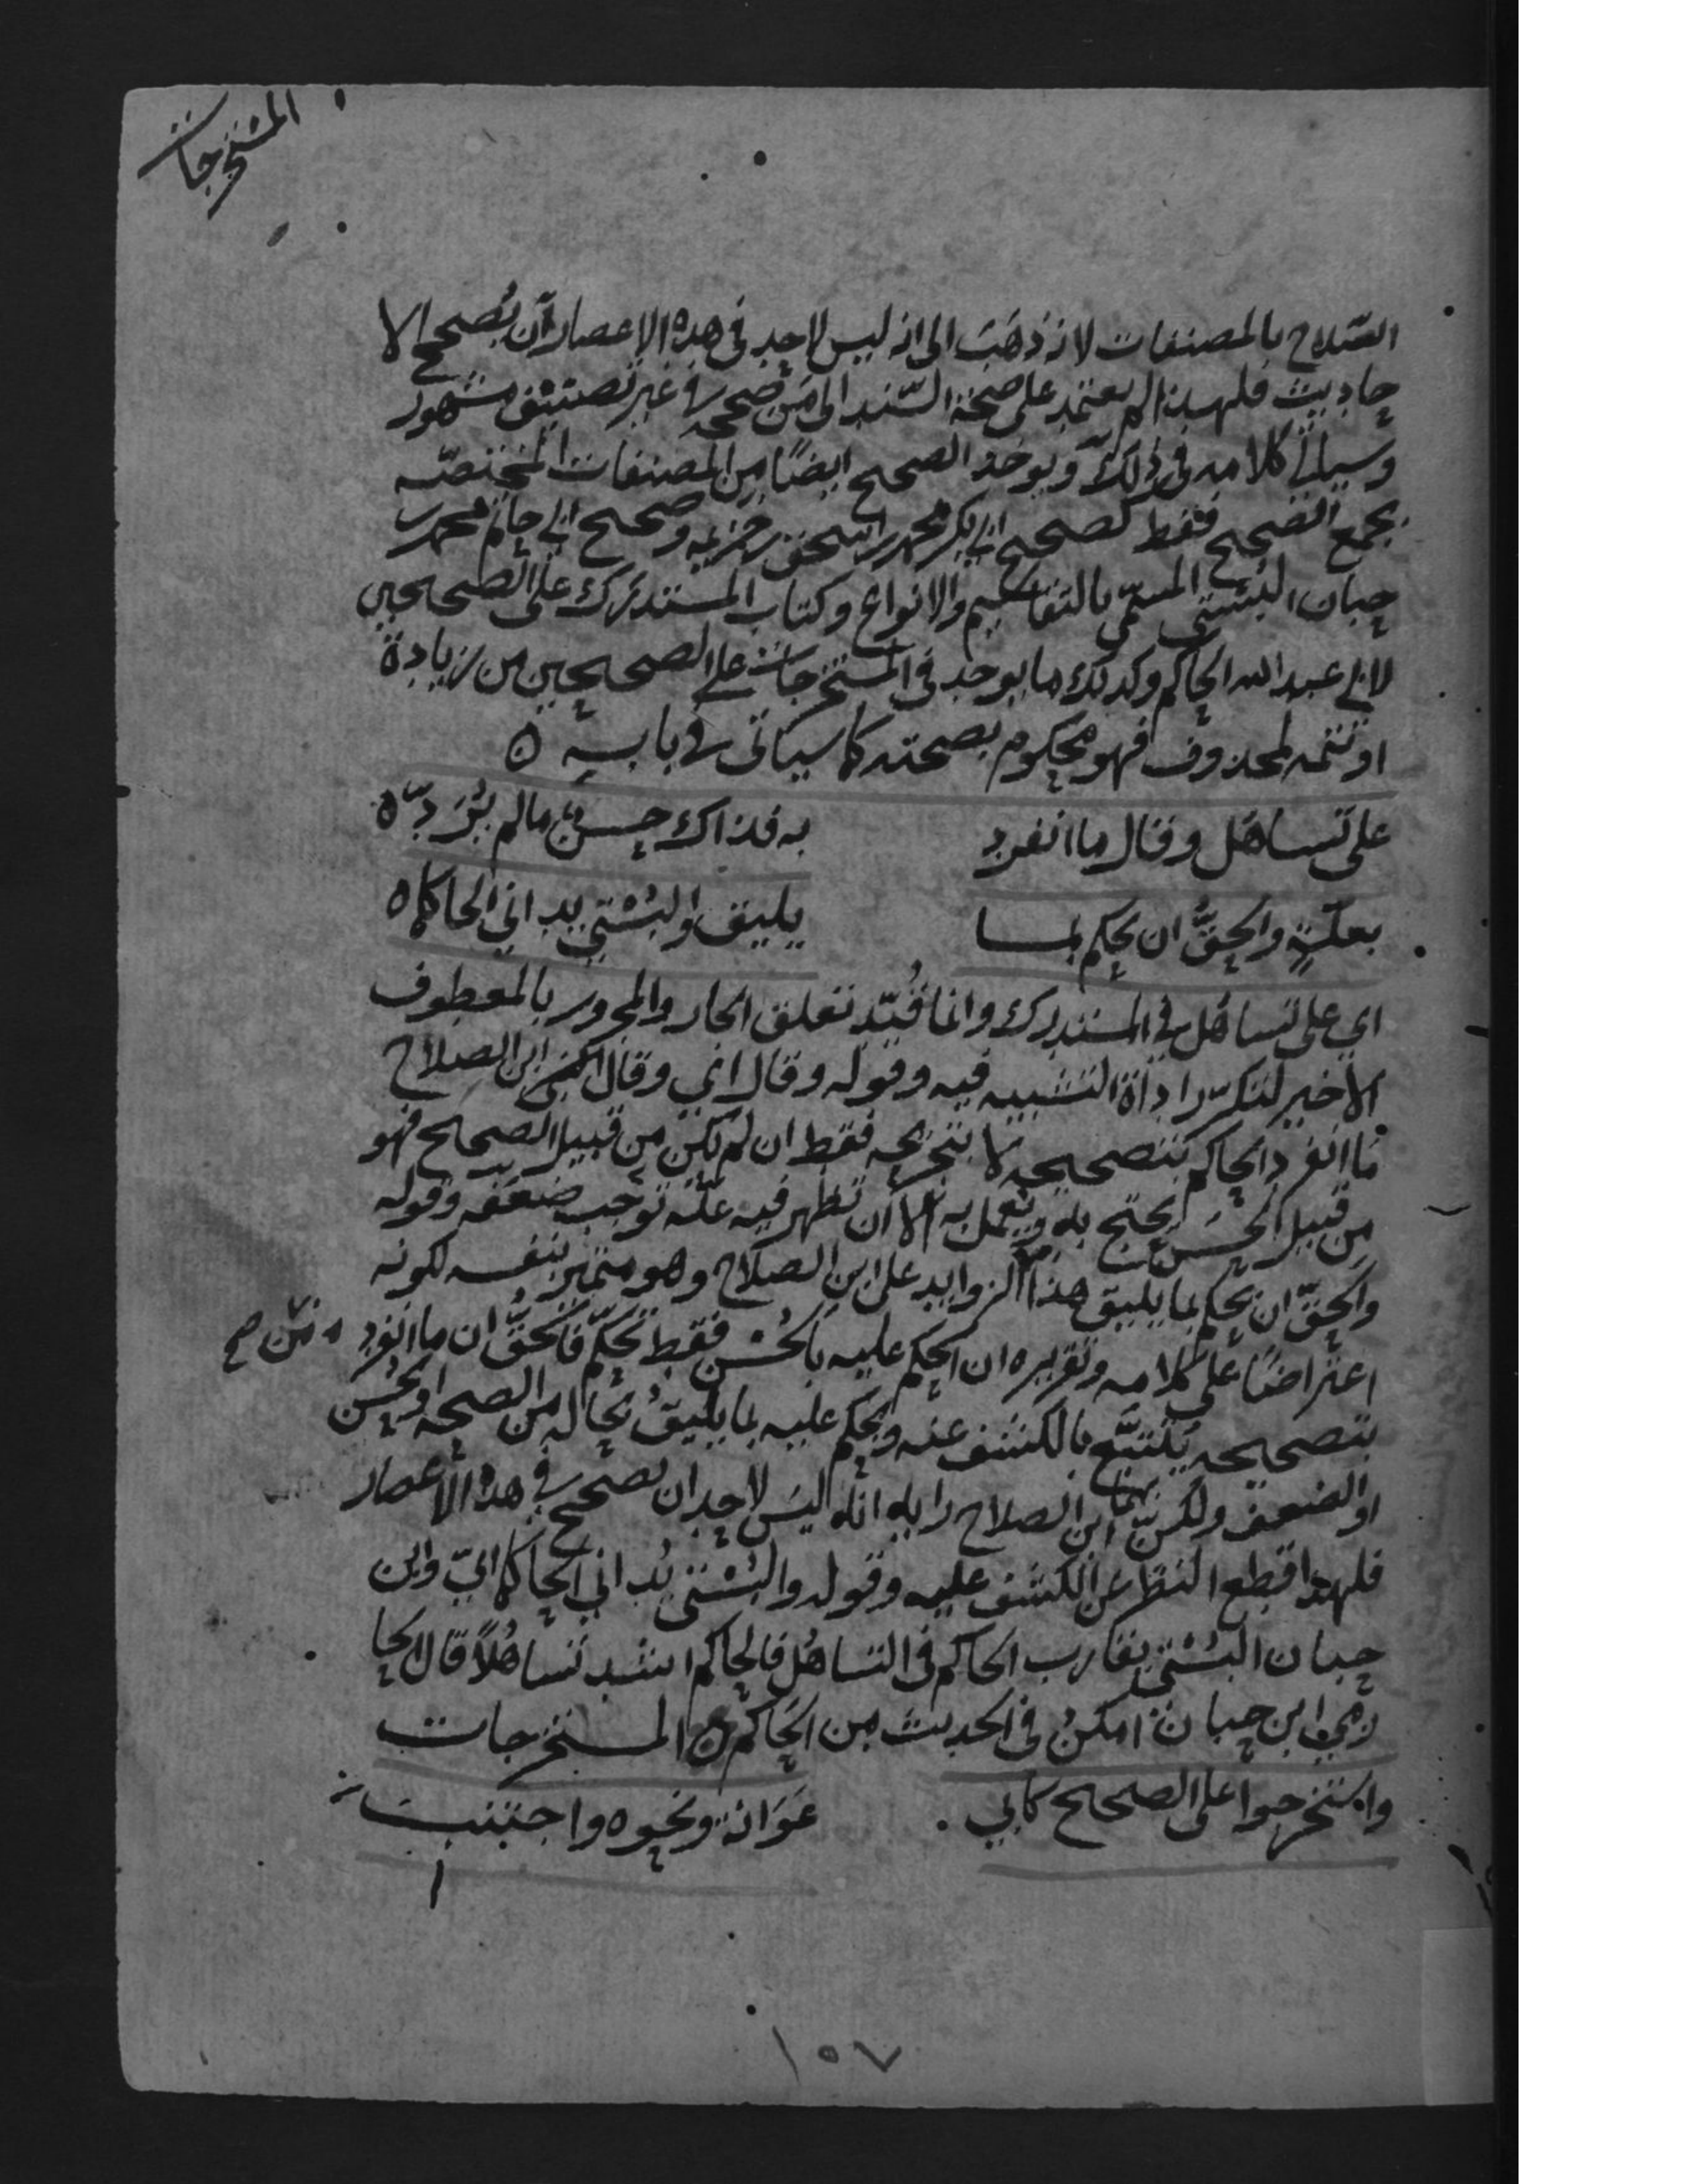 المستخرجات
الصّلاح بالمصنفات لانه ذهَبَ الى انه ليس لاحد في هذه الاعصار أن يُصحح الا
حاديث فلهذا لم يعتمد على صحة السّند الى مَن صححه في غير تصنيف مشهور
وسياتي كلامه في ذلك ويوخذ الصحيح ايضًا من المصنفات المختصّه
بجمع الصحيح فقط كصحيح ابي بكر محمد بن اسحق بن خزيمه وصحيح ابي حاتم محمد بن
حبان البُستي المسمّى بالتقاسيم والانواع وكتاب المستدرك على الصحيحين
لابي عبد الله الحاكم وكذلك ما يوجد في المستخرجات على الصحيحين من زيادة
او تتمه لمحذوف فهو محكوم بصحته كما سياتي في بابه ه
على تساهل وقال ما انفرد به فذاك حسنٌ ما لم يُرَدّ ه
بعلّةٍ والحقُّ ان يحكم بما يليق والبُسْتي يداني الحاكما ه
اي على تساهل في المستدرك وانما قُيّد تعلق الجار والمجرور بالمعطوف
الاخير لتكرّر اداة التشبيه فيه وقوله وقال اي وقال الشيخ ابن الصلاح
مَا انفرد الحاكم بتصحيحه لا بتخريجه فقط ان لم يكن من قبيل الصحيح فهو
من قبيل الحسَن يحتج به ويعمل به الا أن تظهر فيه علّه توجب ضعفه وقوله
والحقّ ان يحكم بما يليق هذا من الزوايد على ابن الصلاح وهو متميز بنفسه لكونه
اعتراضًا على كلامه وتقريره ان الحكم عليه بالحُسْن فقط تحكّم فالحقُّ ان ما انفرد
بتصحيحه يُتتبَّع بالكشف عنه ويحكم عليه بما يليقُ بحاله من الصحه او الحُسن
او الضعف ولكن ابن الصلاح رايه انه ليس لاحد ان يصحح في هذه الاعصار
فلهذا قطع النظر عن الكشف عليه وقوله والبُسْتي يُداني الحاكما اي وابن
حبان البُسْتي يقارب الحاكم في التساهُل فالحاكم اشد تساهُلاً قال الحا
زمي ابن حبان امكنُ في الحديث من الحاكم ه المستخرجات
واستخرجوا على الصحيح كابي عَوَانة ونحوه واجتنب
١٥٧